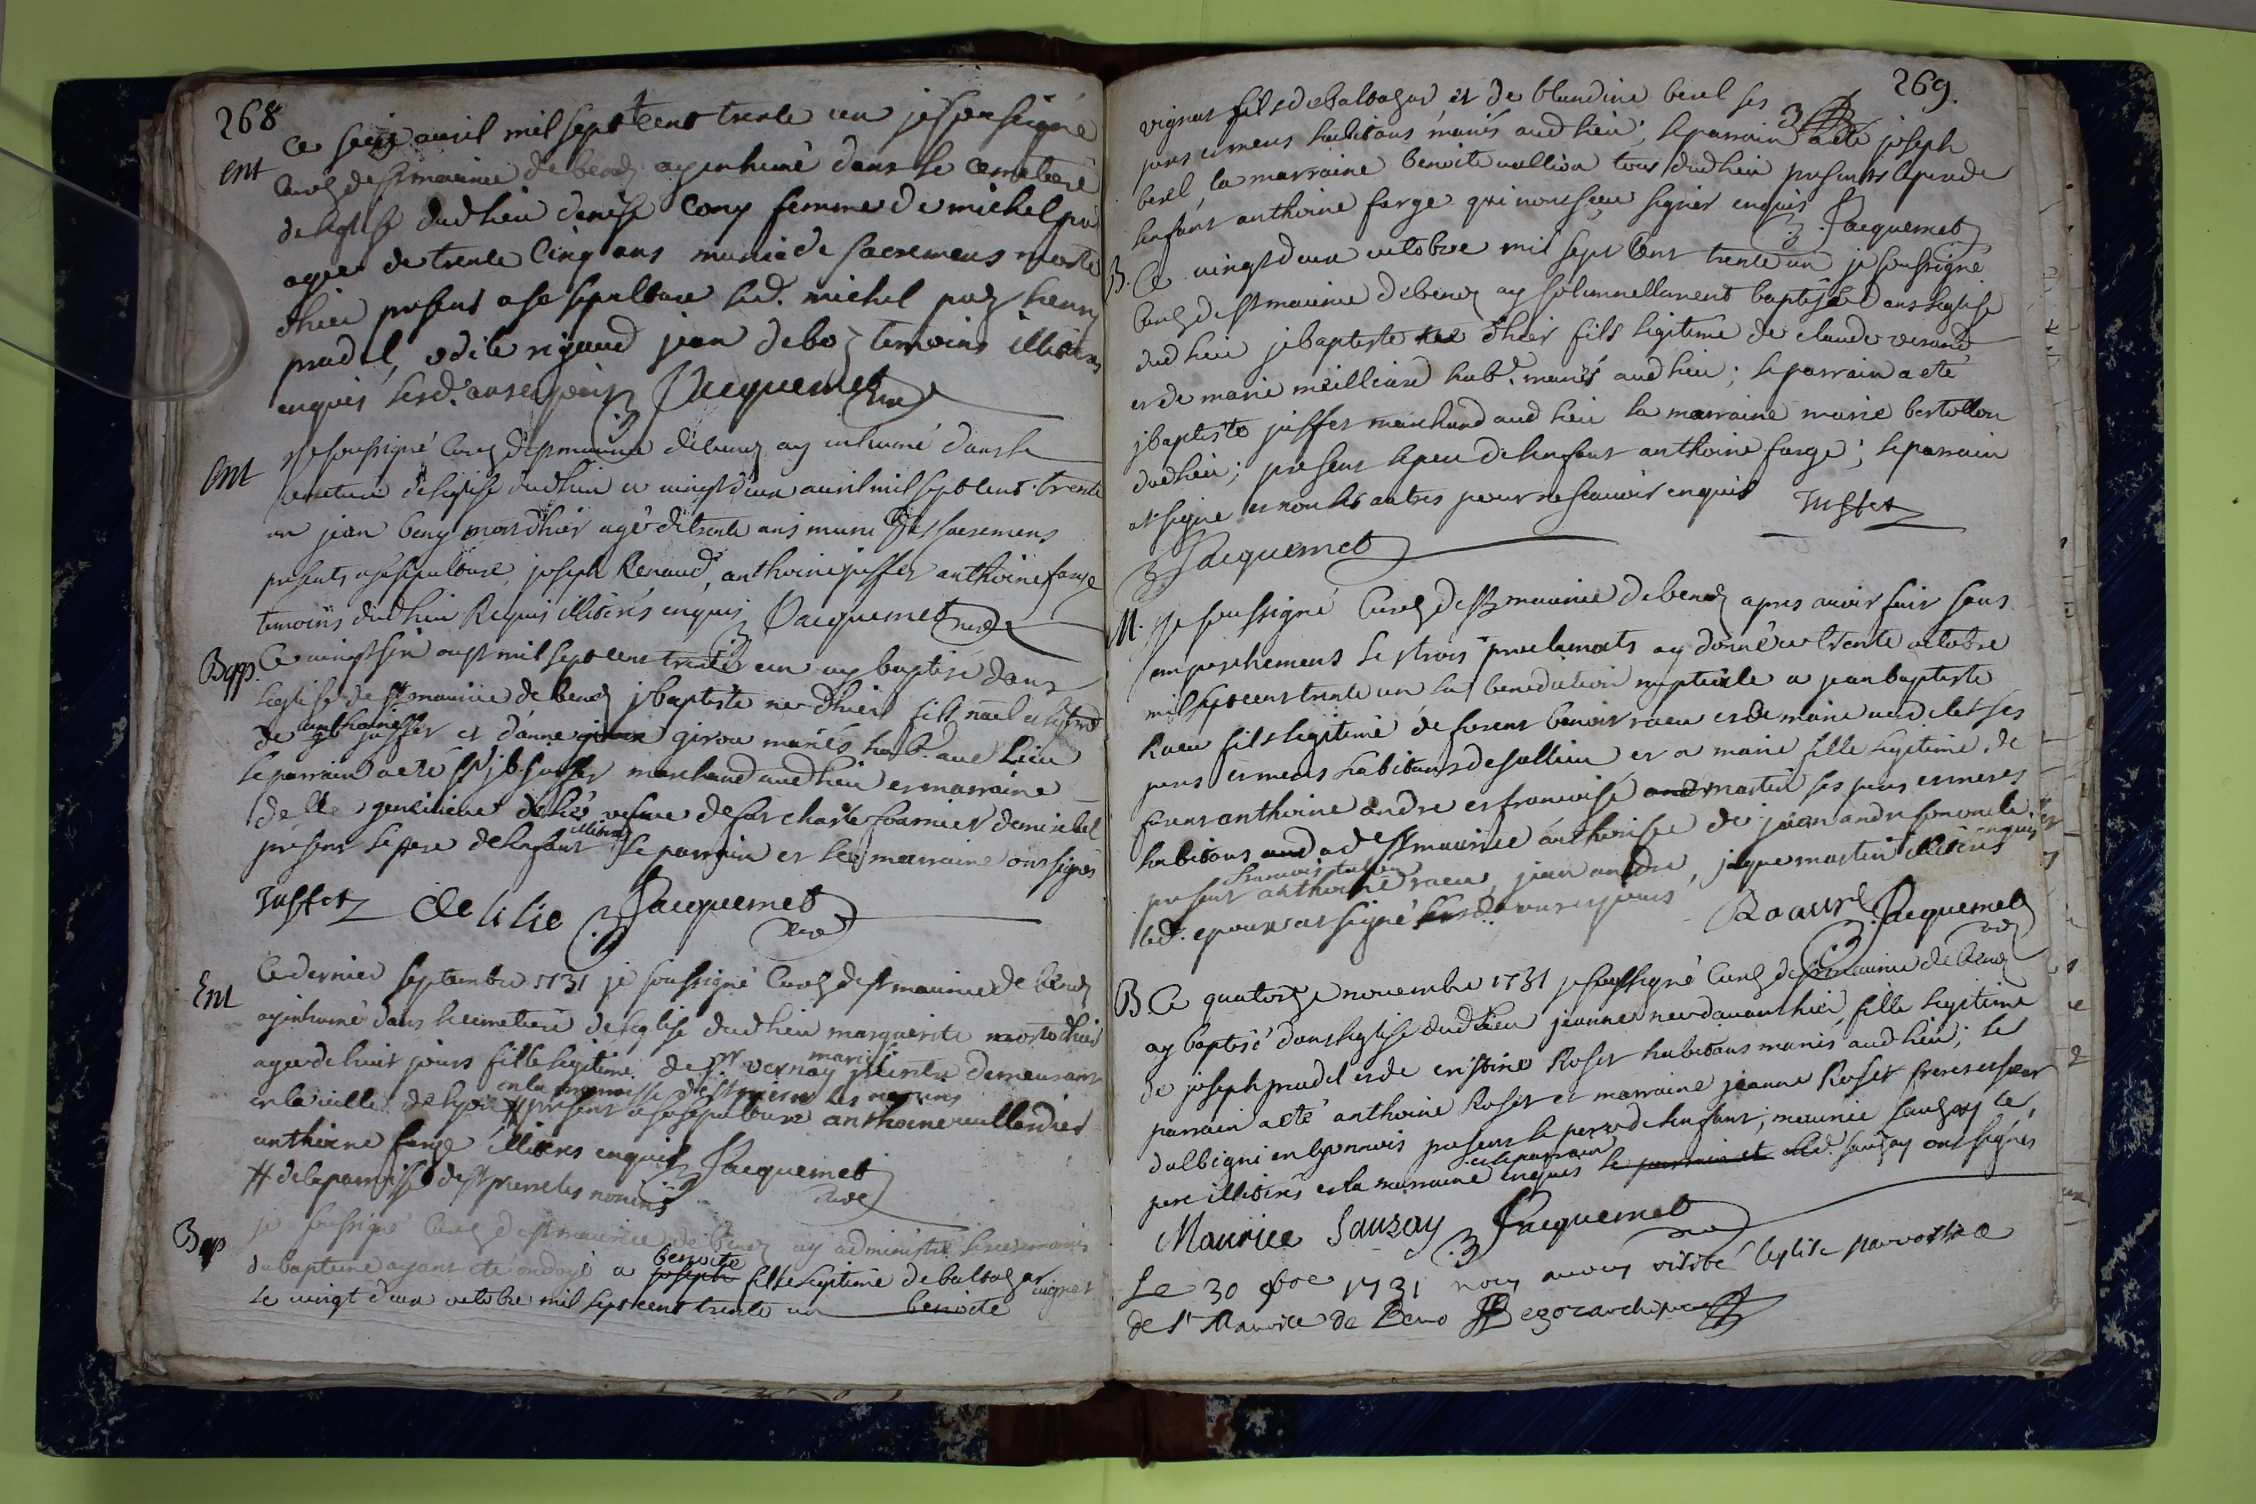 268
Ent
ce seize avril mil sept cens trente un je soussigné
curé de st maurice de beno ay inhumé dans le cemetiere
de leglise dud lieu denise Cony femme de michel
agee de trente cinq ans munie de sacremens morte
dhier presens a sa sepulture led. michel henry
pradel, odile rigaud jean debo temoins illiteres
enquis lesd. ans Jacquemet curé
Ent
Je soussigné curé de st maurice de beno ay inhumé dans le
cemetiere de leglise dud lieu ce vingt deux avril mil sept cens trente
un jean beny mort dhier agé de trente ans muni des sacremens
presents a sa sepulture joseph Renaud, anthoine juffet anthoine farge
temoins dud lieu Requis illiterés enquis Jacquemet curé
Bapp.
Ce vingt six oust mil sept cens trente un ay baptisé dans
leglise de st maurice de beno jbaptiste né dhier fils nael et legitime
de anthoine juffet et danne girou mariés hab. aud Lieu
le parrain a eté sr jb juffet marchand aud lieu et marraine
delle de lilie veufve de feu charle fournier de miribel
present le pere de lenfant illiteré le parrain et la marraine ont signés
Juffet de lilie Jacquemet curé
Ent
Ce dernier septembre 1731 je soussigné curé de st maurice de beno
ay inhumé dans le cemetiere de leglise dud lieu marguerite morte dhier
agee de huit jours fille legitime de sr vernay marié demeurant
en la ville de lyon # present a sa sepulture anthoine vullardier
en la paroisse de st pierre les nonins
anthoine farge illiteres enquis Jacquemet curé
# de la parroisse de st pierre les nonins
Bap
je soussigné curé de st maurice de beno ay administré les ceremonies
du bapteme ayant ete ondoyé a benoite joseph fille legitime de baltazar vignat
le vingt deux octobre mil sept cens trente un benoite
269.
vignat fils de Baltazar et de blandine berel ses
peres et meres habitans mariés aud lieu; le parrain a eté joseph
berel, la marraine benoite vullion tous dud lieu presents le pere de
lenfant anthoine farge qui nont sceu signer enquis
Jacquemet
B.
Ce vingt deux octobre mil sept cens trente un je soussigné
curé de st maurice de beno ay solemnellement baptisé dans leglise
dud lieu jbaptiste né dhier fils legitime de claude verand
et de marie meilleure hab. mariés aud lieu; le parrain a eté
jbaptiste juffet marchand aud lieu la marraine marie bertollon
dud lieu; present le pere de lenfant anthoine farge; le parrain
at signé et non les autres pour ne scavoir enquis Juffet
Jacquemet
M.
Je soussigné curé de st maurice de beno apres avoir fait sans
empeschemens les trois proclamats ay donné ce trente octobre
mil sept cens trente un la benediction nuptiale a jean baptiste
raeu fils legitime de feu sr benoit raeu et de marie ses
peres et meres habitans de sallieu et a marie fille legitime de
feu sr anthoine andre et francoise andr martin ses peres et meres
habitans aud a de st maurice authorisée de jean andre son oncle
present anthoine raeu, jean andre, jaque martin illiteres enquis
led. epoux at signé
Jacquemet
B
Ce quatorze novembre 1731 je soussigné curé de st maurice de beno
ay baptisé dans leglise dud lieu jeanne née davant hier, fille legitime
de joseph pradel et de cristine Roset habitans mariés aud lieu; le
parrain a eté anthoine Roset et marraine jeanne Roset frere et soeur
dalbigni en lyonnois presens le pere de lenfant; maurice sauzay le
pere illiterés et la marraine enquis et le parrain le parrain et led. sauzay ont signés
Maurice Sauzay Jacquemet
Le 30 9bre 1731 nous avons visité leglise parrossialle
de St Maurice de Beno